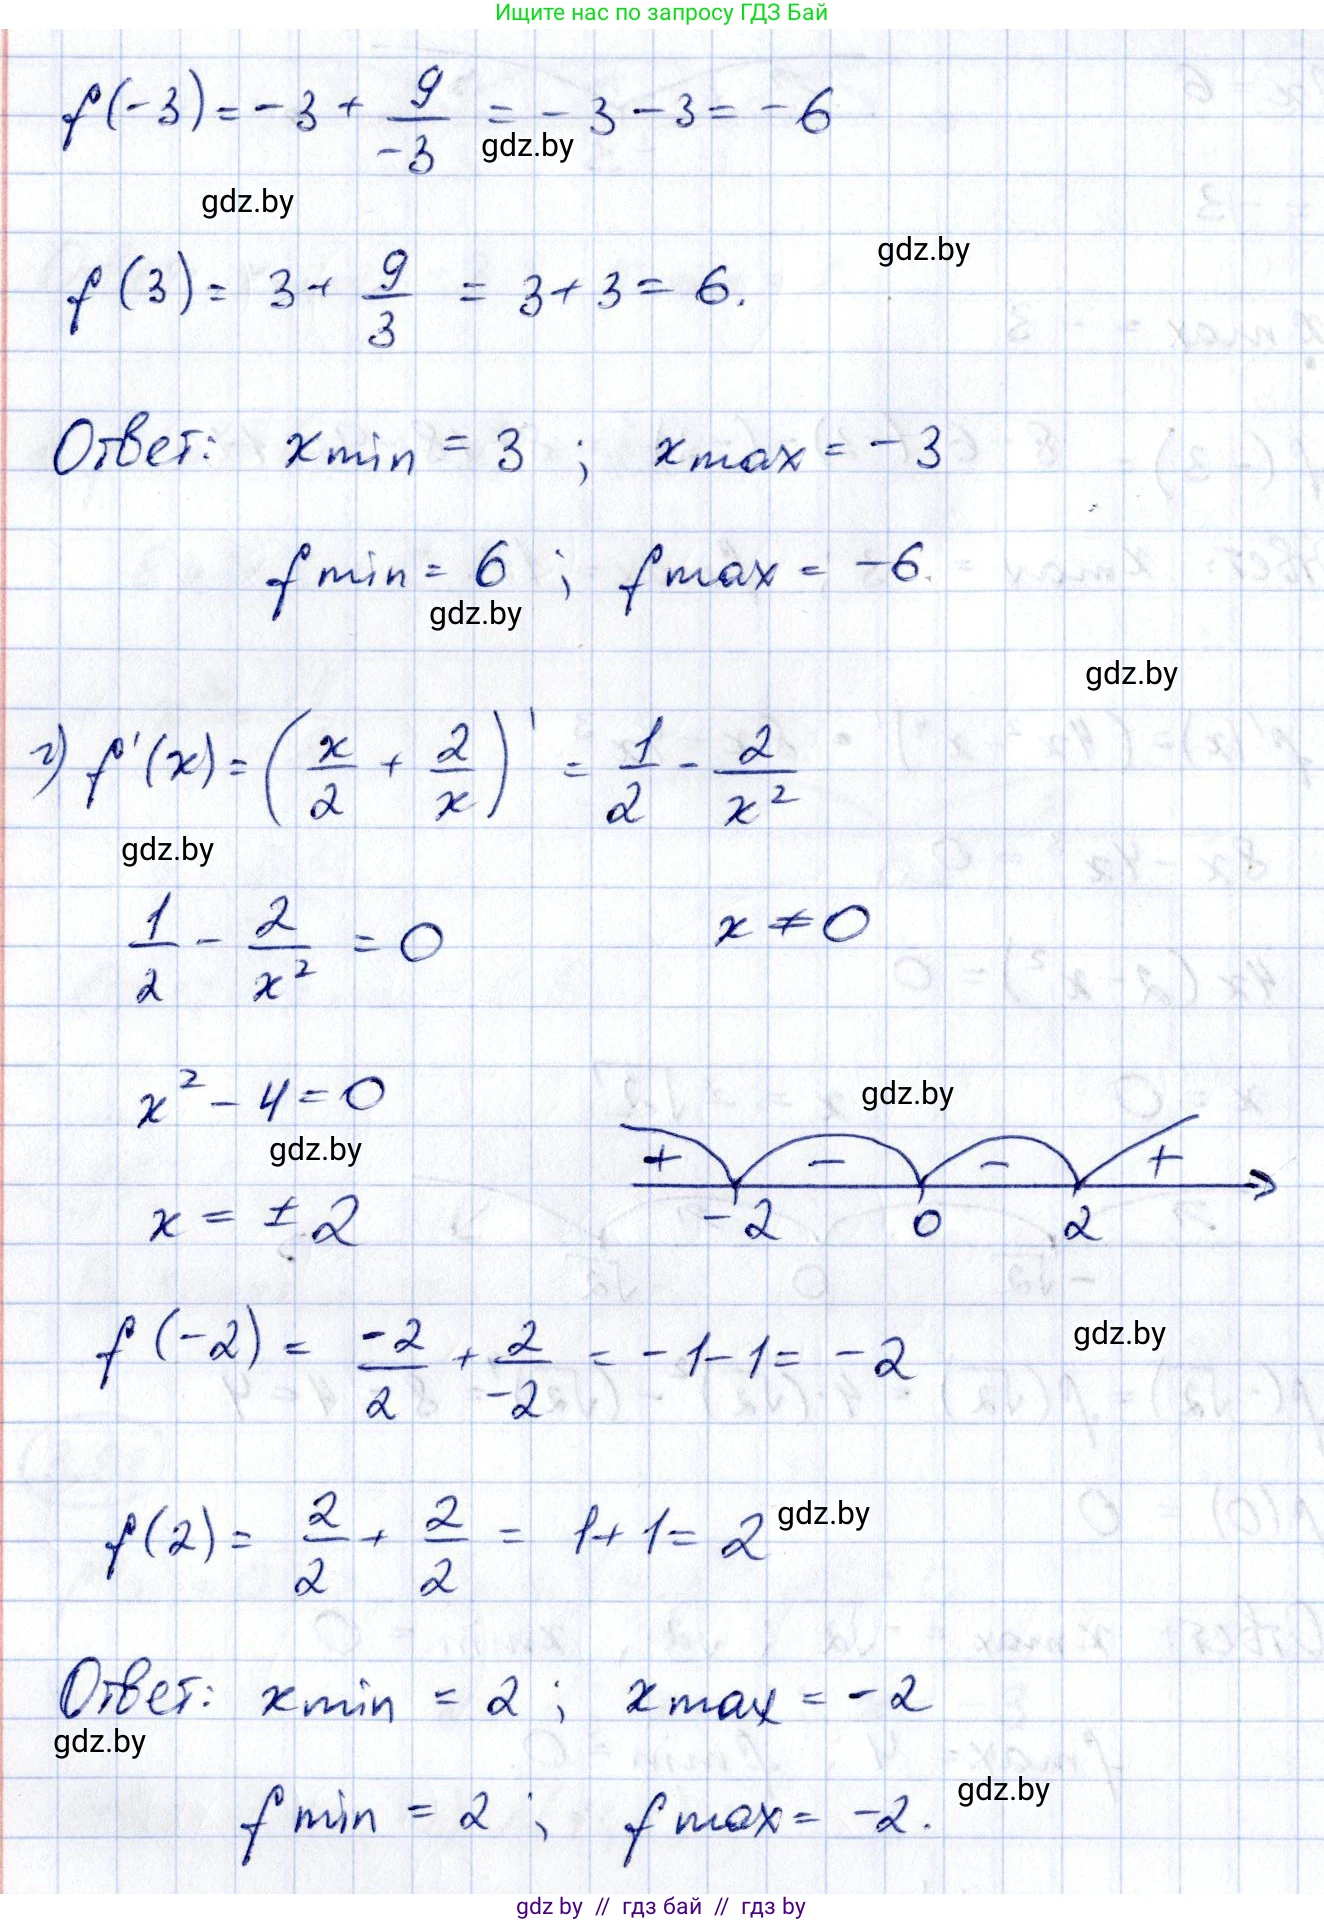 Ищите нас по запросу ГДЗ Бай
f(-3) = -3 + 9/-3 = -3 - 3 = -6
gdz.by
gdz.by
gdz.by
f(3) = 3 + 9/3 = 3 + 3 = 6.
Ответ: xmin = 3 ; xmax = -3
fmin = 6 ; fmax = -6.
gdz.by
gdz.by
г) f'(x) = (x/2 + 2/x)' = 1/2 - 2/x²
gdz.by
1/2 - 2/x² = 0 x ≠ 0
x² - 4 = 0
gdz.by
gdz.by
+ - - +
x = ± 2
-2 0 2
f(-2) = -2/2 + 2/-2 = -1 - 1 = -2
gdz.by
f(2) = 2/2 + 2/2 = 1 + 1 = 2
gdz.by
Ответ: xmin = 2 ; xmax = -2
gdz.by
gdz.by
fmin = 2 ; fmax = -2.
gdz by // гдз бай // гдз by